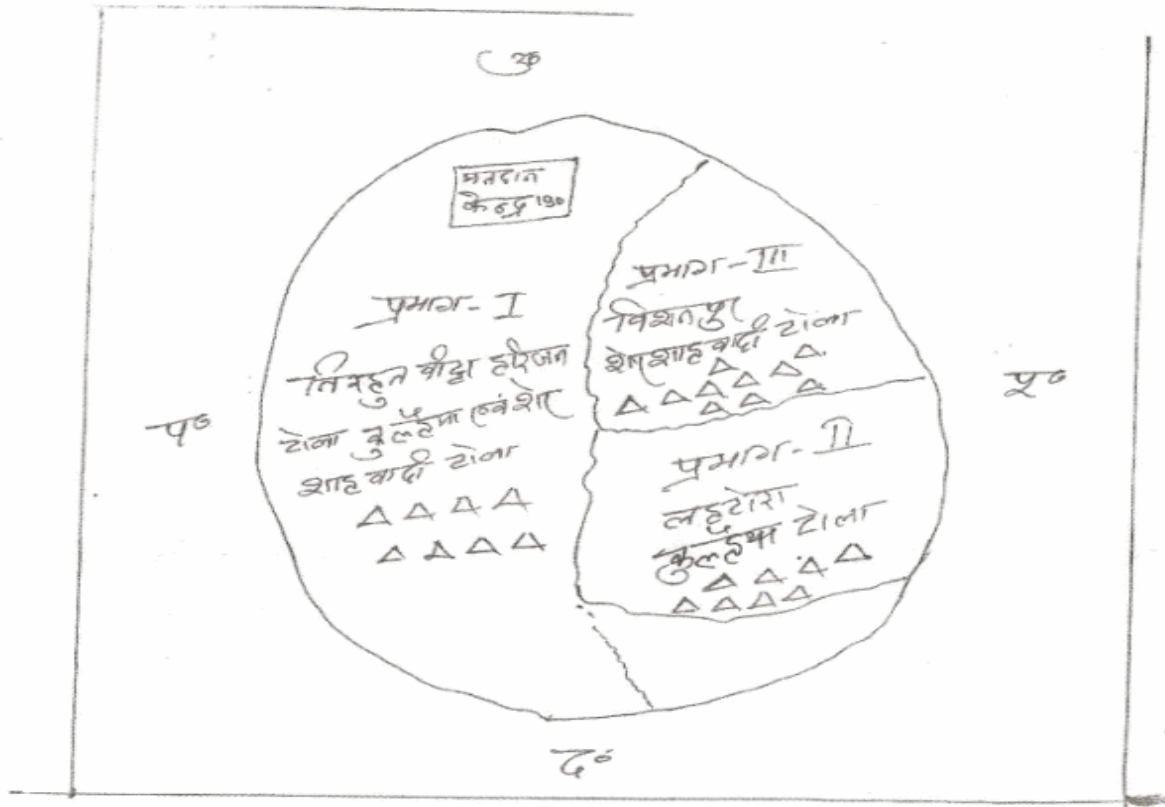 उ०
मतदान
केन्द्र 190
प्रभाग - I
तिरहुत बीट्टा हरिजन
टोला कुल्हैया एवं शेर
शाहवादी टोला
प्रभाग - III
विशनपुर
शेरशाहवादी टोला
प्रभाग - II
लहटोरा
कुल्हैया टोला
प०
पू०
द०